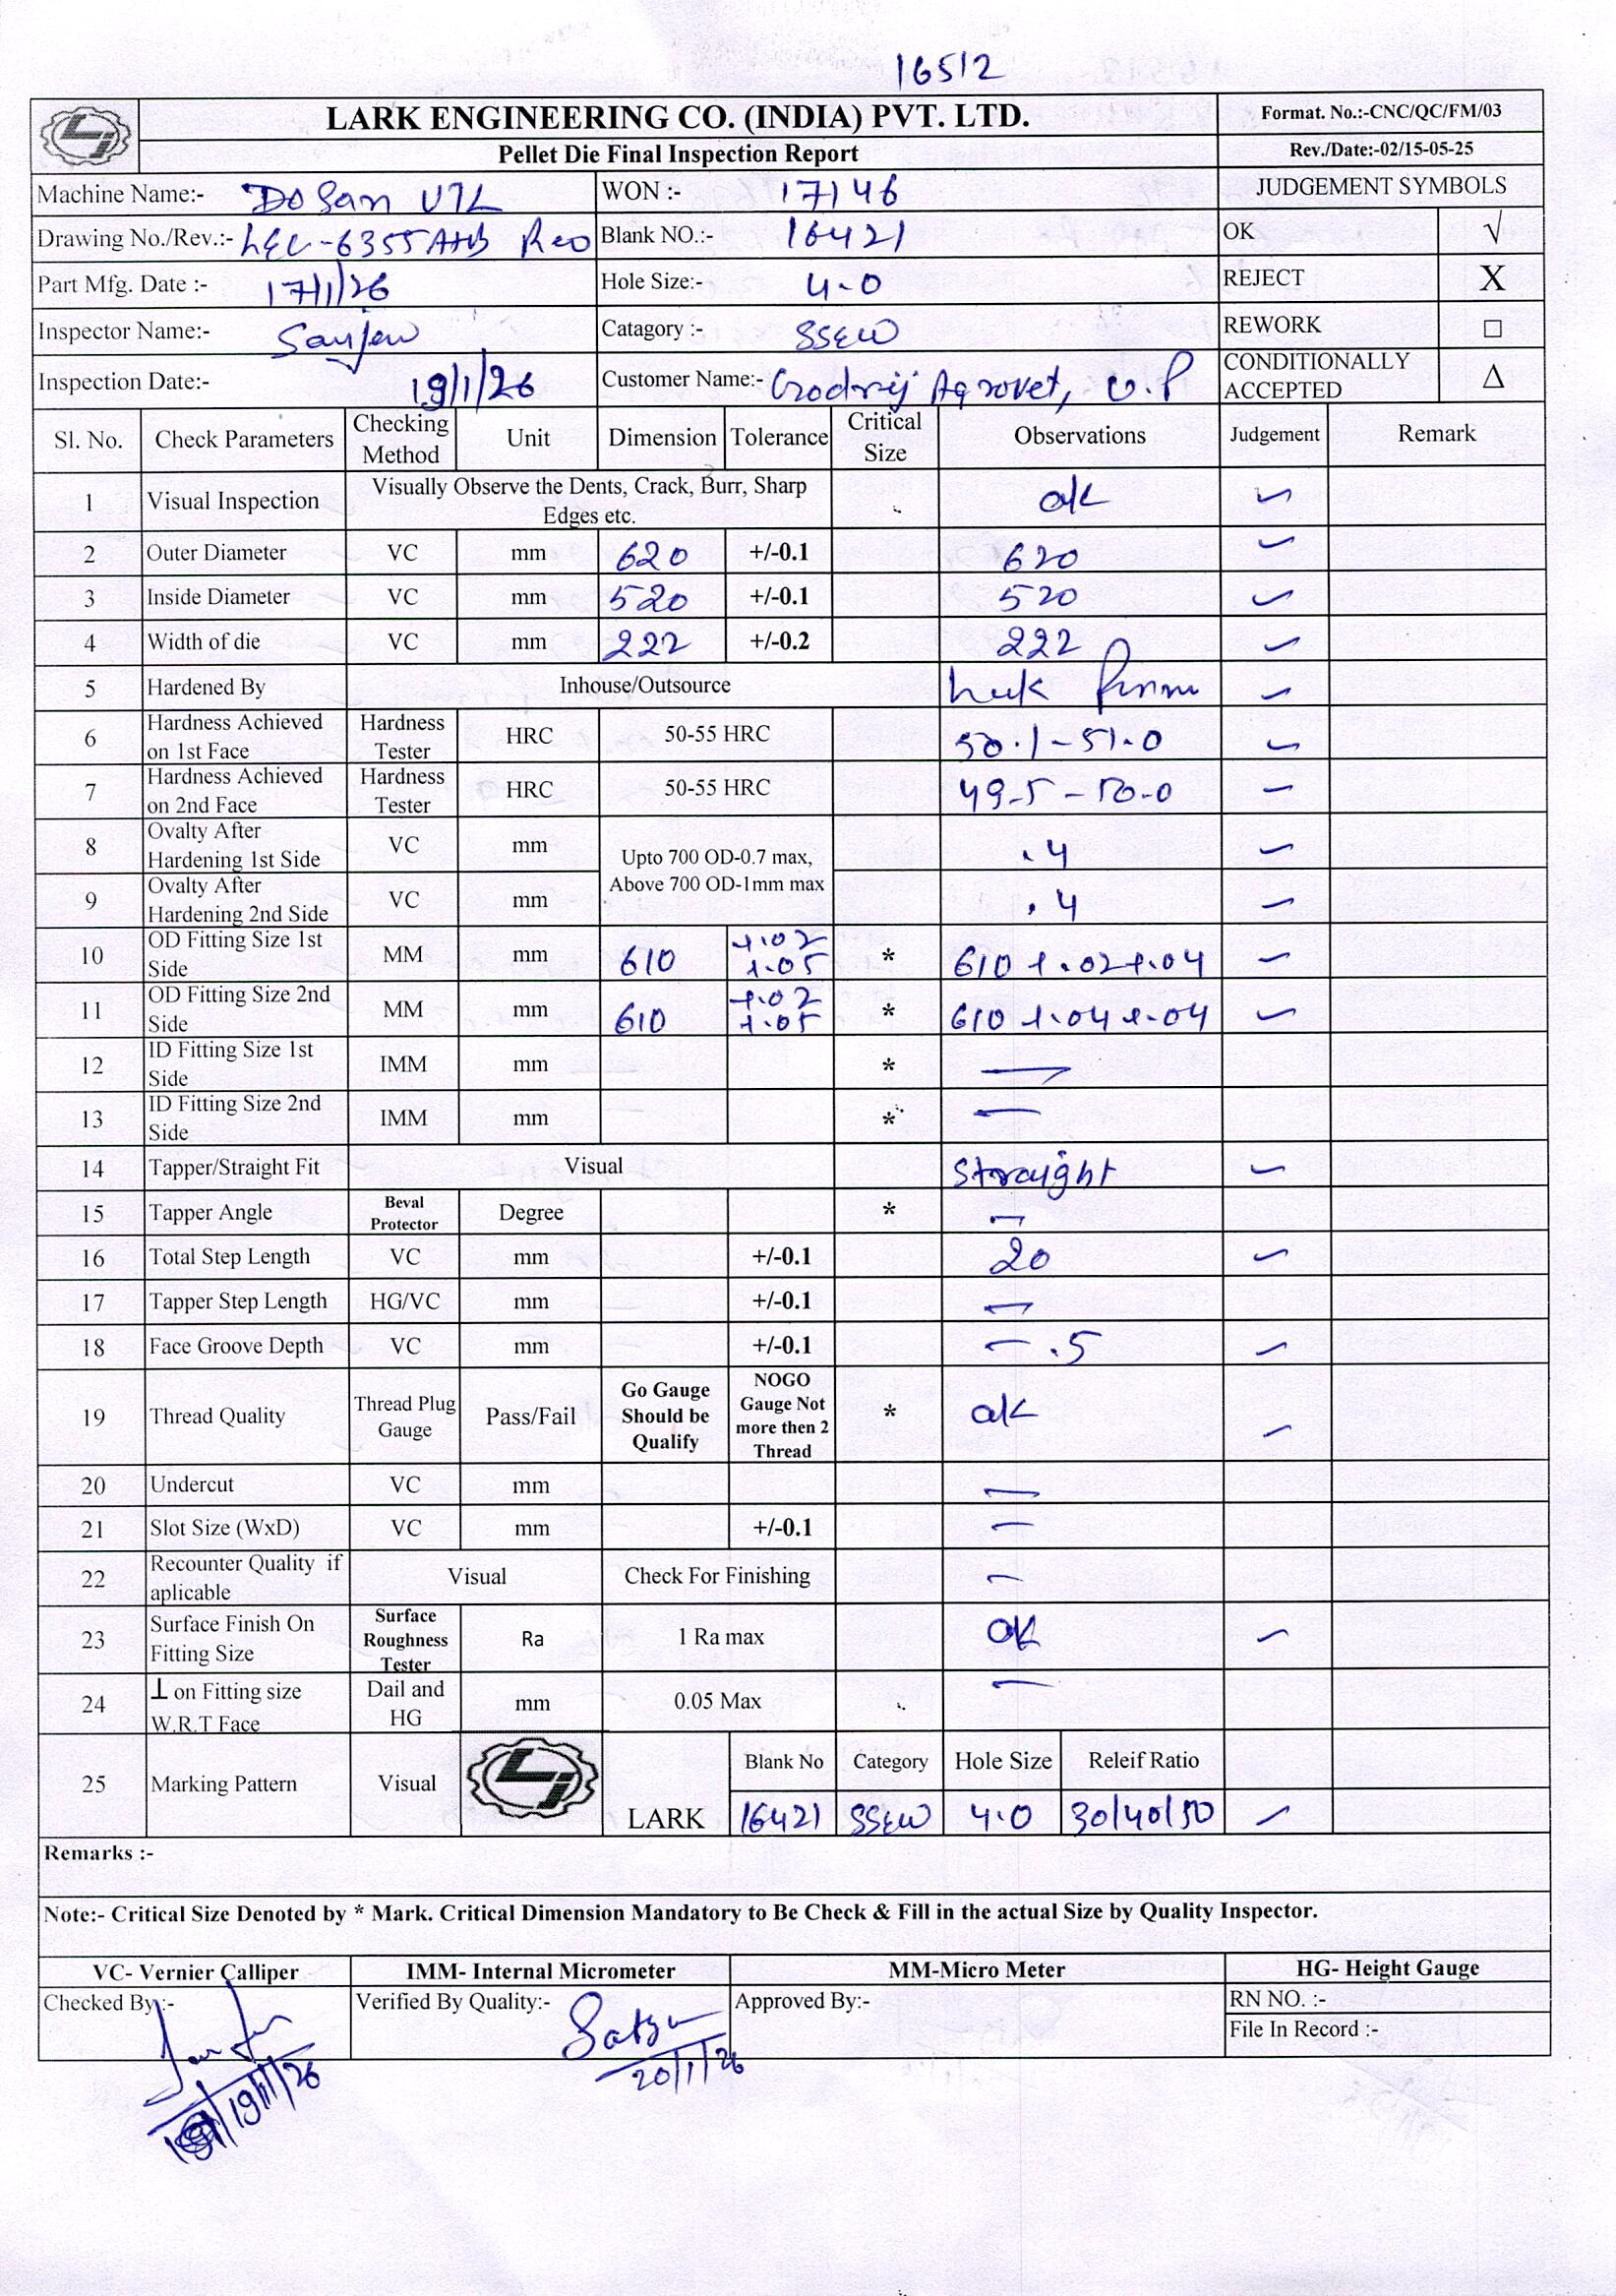 16512
LARK ENGINEERING CO. (INDIA) PVT. LTD.
Format. No.:-CNC/QC/FM/03
Pellet Die Final Inspection Report
Rev./Date:-02/15-05-25
Machine Name:- DoSan VTL WON :- 17146 JUDGEMENT SYMBOLS
Drawing No./Rev.:- LEC-6355 AHB Reo Blank NO.:- 16421 OK √
Part Mfg. Date :- 17/1/26 Hole Size:- 4.0 REJECT X
Inspector Name:- Sanjeev Catagory :- SSEW REWORK □
Inspection Date:- 19/1/26 Customer Name:- Godrej Agrovet, U.P CONDITIONALLY ACCEPTED Δ
Sl. No. Check Parameters Checking Method Unit Dimension Tolerance Critical Size Observations Judgement Remark
1 Visual Inspection Visually Observe the Dents, Crack, Burr, Sharp Edges etc. ok ✓
2 Outer Diameter VC mm 620 +/-0.1 620 ✓
3 Inside Diameter VC mm 520 +/-0.1 520 ✓
4 Width of die VC mm 222 +/-0.2 222 ✓
5 Hardened By Inhouse/Outsource ✓
6 Hardness Achieved on 1st Face Hardness Tester HRC 50-55 HRC 50.1-51.0 ✓
7 Hardness Achieved on 2nd Face Hardness Tester HRC 50-55 HRC 49.5-50.0 ✓
8 Ovalty After Hardening 1st Side VC mm Upto 700 OD-0.7 max, Above 700 OD-1mm max .4 ✓
9 Ovalty After Hardening 2nd Side VC mm .4 ✓
10 OD Fitting Size 1st Side MM mm 610 +.02 +.05 * 610 +.02 +.04 ✓
11 OD Fitting Size 2nd Side MM mm 610 +.02 +.05 * 610 +.04 +.04 ✓
12 ID Fitting Size 1st Side IMM mm * —
13 ID Fitting Size 2nd Side IMM mm * —
14 Tapper/Straight Fit Visual Straight ✓
15 Tapper Angle Beval Protector Degree * —
16 Total Step Length VC mm +/-0.1 20 ✓
17 Tapper Step Length HG/VC mm +/-0.1 —
18 Face Groove Depth VC mm +/-0.1 — .5 ✓
19 Thread Quality Thread Plug Gauge Pass/Fail Go Gauge Should be Qualify NOGO Gauge Not more then 2 Thread * ok ✓
20 Undercut VC mm —
21 Slot Size (WxD) VC mm +/-0.1 —
22 Recounter Quality if aplicable Visual Check For Finishing —
23 Surface Finish On Fitting Size Surface Roughness Tester Ra 1 Ra max OK ✓
24 ⊥ on Fitting size W.R.T Face Dail and HG mm 0.05 Max —
25 Marking Pattern Visual LARK Blank No Category Hole Size Releif Ratio
16421 SSEW 4.0 30/40/50 ✓
Remarks :-
Note:- Critical Size Denoted by * Mark. Critical Dimension Mandatory to Be Check & Fill in the actual Size by Quality Inspector.
VC- Vernier Calliper IMM- Internal Micrometer MM-Micro Meter HG- Height Gauge
Checked By:- Verified By Quality:- Approved By:- RN NO. :-
File In Record :-
20/1/26
19/1/26